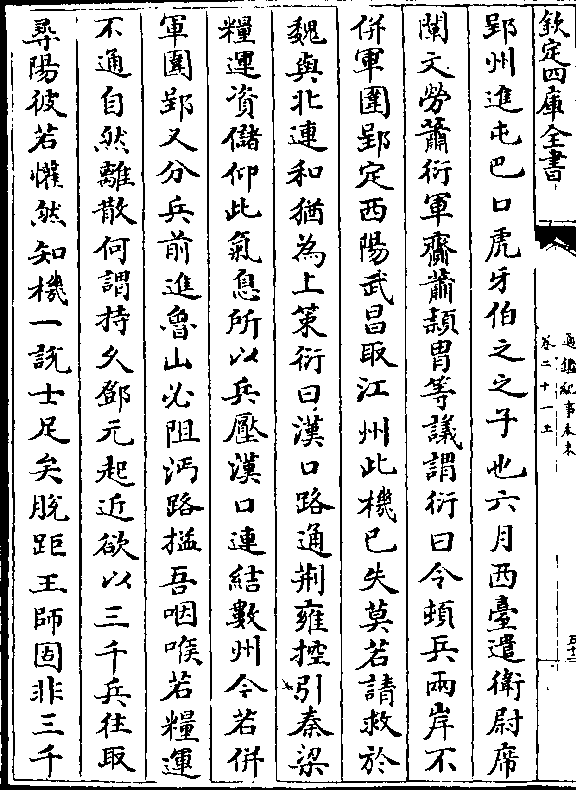 欽定四庫全書
通鑑紀事本末
卷二十一上
五十三
郢州進屯巴口虎牙伯之之子也六月西臺遣衛尉席
闡文勞蕭衍軍齎蕭穎胄等議謂衍曰今頓兵兩岸不
併軍圍郢定西陽武昌取江州此機已失莫若請救於
魏與北連和猶為上策衍曰漢口路通荆雍控引秦梁
糧運資儲仰此氣息所以兵壓漢口連結數州今若併
軍圍郢又分兵前進魯山必阻沔路搤吾咽喉若糧運
不通自然離散何謂持久鄧元起近欲以三千兵往取
尋陽彼若懽然知機一說士足矣脫距王師固非三千